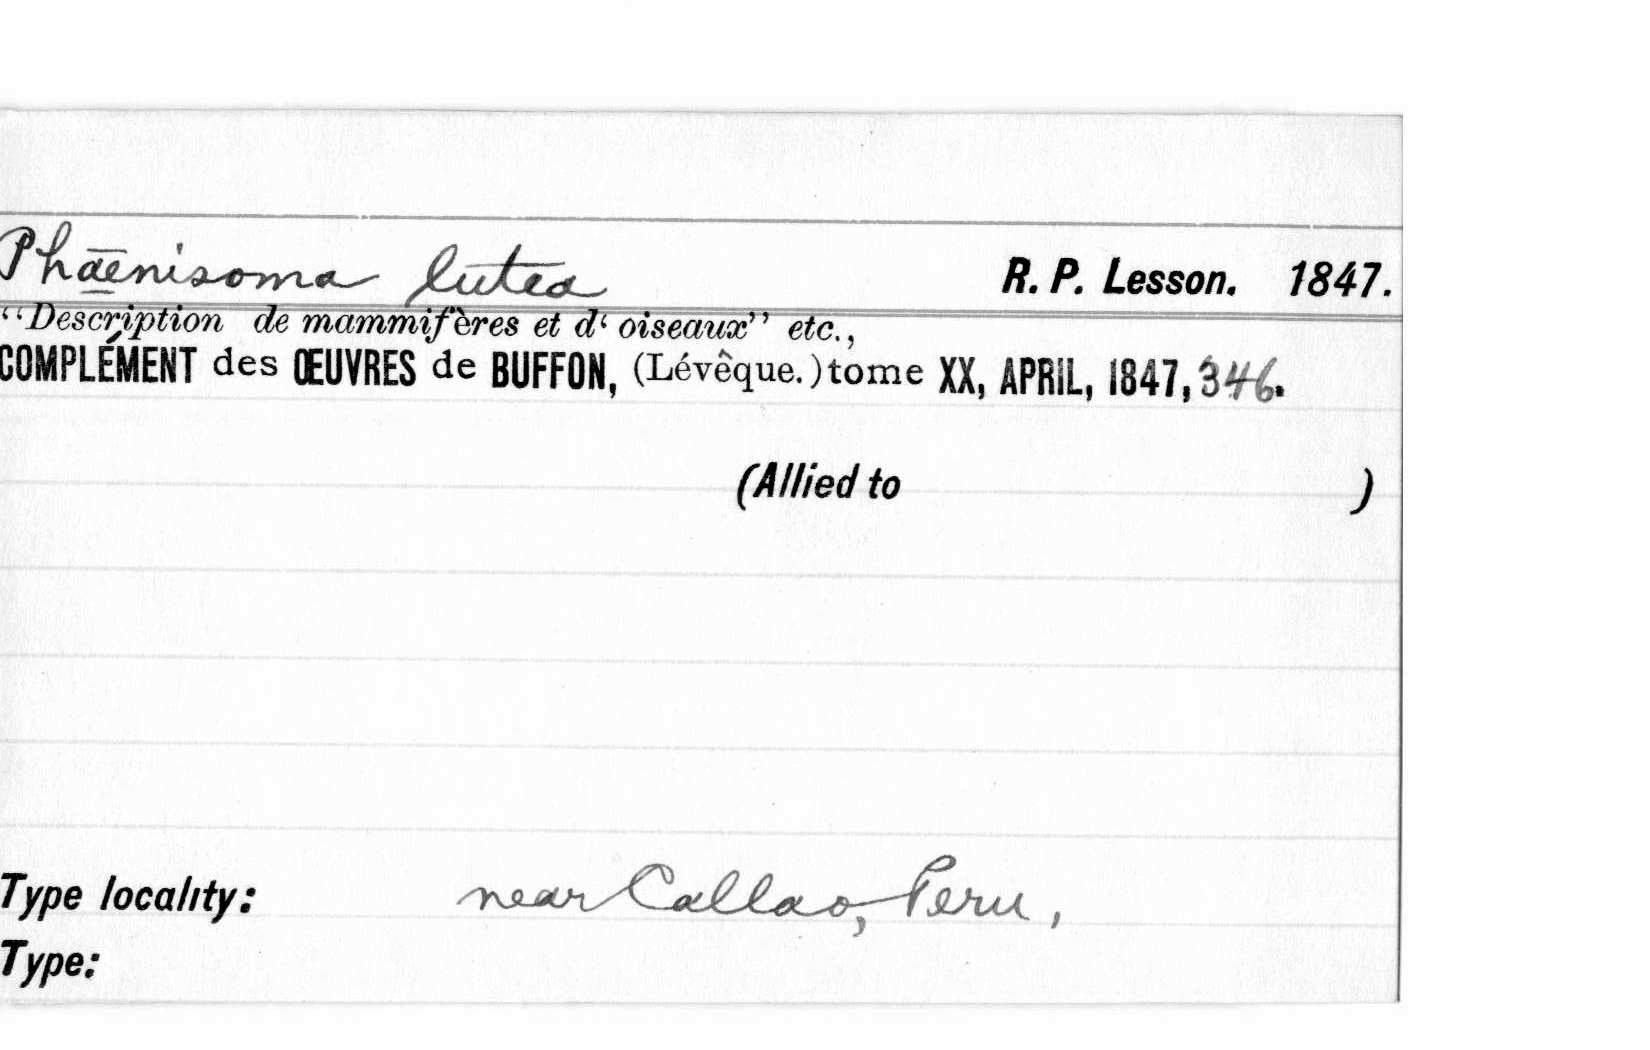 Phaenisoma lutea R. P. Lesson. 1847.
“Description de mammifères et d‘ oiseaux” etc.,
COMPLÉMENT des ŒUVRES de BUFFON, (Lévêque.) tome XX, APRIL, 1847, 346.
(Allied to )
Type locality: near Callao, Peru,
Type: